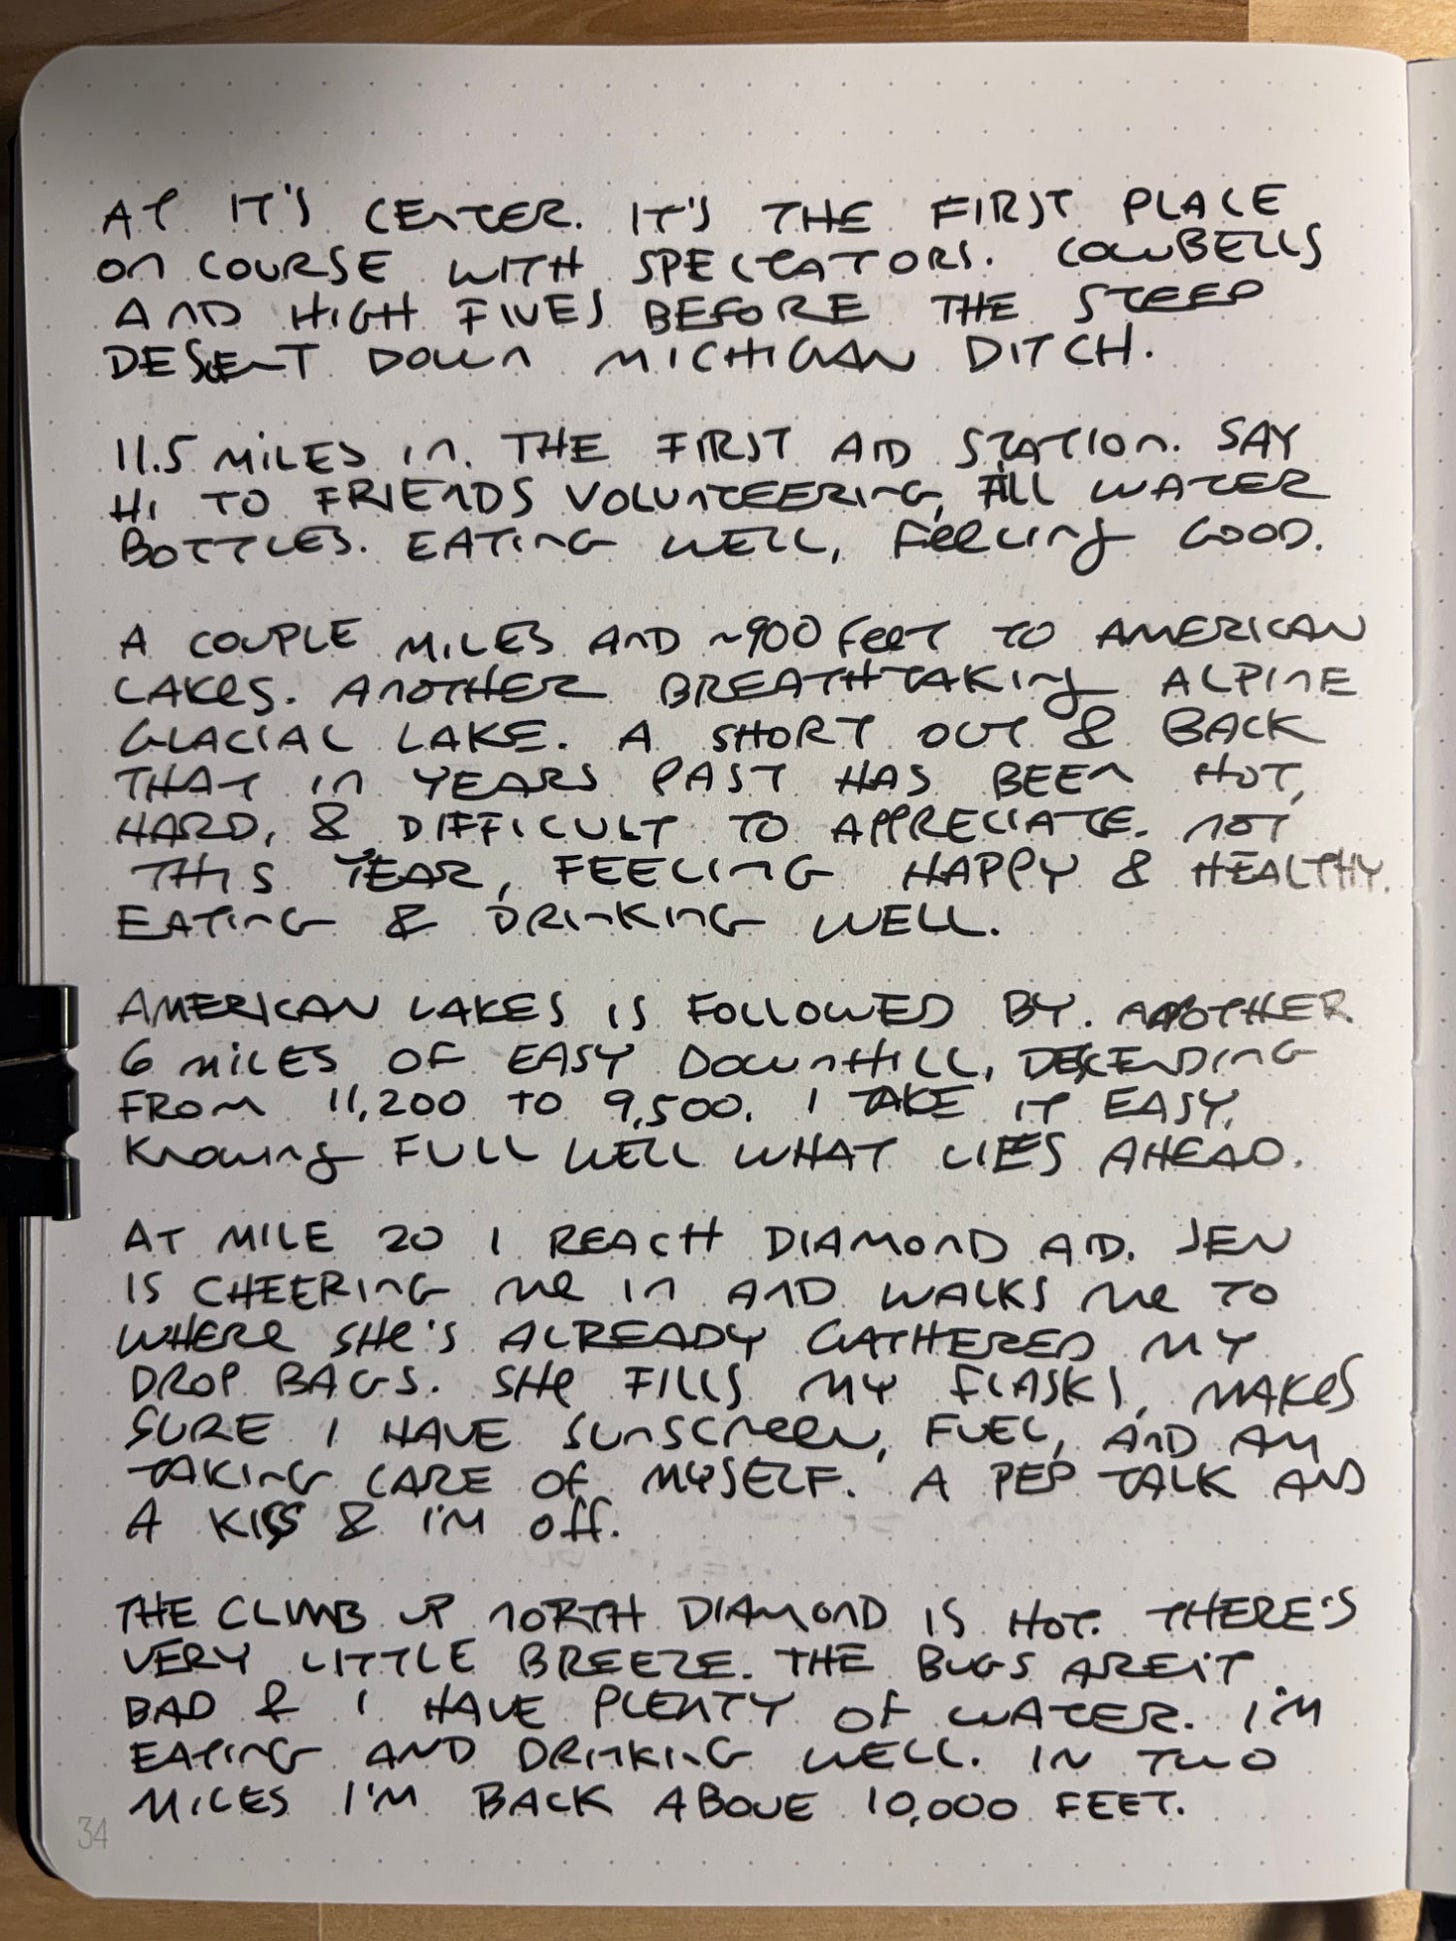 AT IT'S CENTER. IT'S THE FIRST PLACE
ON COURSE WITH SPECTATORS. COWBELLS
AND HIGH FIVES BEFORE THE STEEP
DESCENT DOWN MICHIGAN DITCH.
11.5 MILES IN. THE FIRST AID STATION. SAY
HI TO FRIENDS VOLUNTEERING, FILL WATER
BOTTLES. EATING WELL, FEELING GOOD.
A COUPLE MILES AND ~900 FEET TO AMERICAN
LAKES. ANOTHER BREATHTAKING ALPINE
GLACIAL LAKE. A SHORT OUT & BACK
THAT IN YEARS PAST HAS BEEN HOT,
HARD, & DIFFICULT TO APPRECIATE. NOT
THIS YEAR, FEELING HAPPY & HEALTHY.
EATING & DRINKING WELL.
AMERICAN LAKES IS FOLLOWED BY. ANOTHER
6 MILES OF EASY DOWNHILL, DESCENDING
FROM 11,200 TO 9,500. I TAKE IT EASY,
KNOWING FULL WELL WHAT LIES AHEAD.
AT MILE 20 I REACH DIAMOND AID. JEN
IS CHEERING ME IN AND WALKS ME TO
WHERE SHE'S ALREADY GATHERED MY
DROP BAGS. SHE FILLS MY FLASKS, MAKES
SURE I HAVE SUNSCREEN, FUEL, AND AM
TAKING CARE OF MYSELF. A PEP TALK AND
A KISS & I'M OFF.
THE CLIMB UP NORTH DIAMOND IS HOT. THERE'S
VERY LITTLE BREEZE. THE BUGS AREN'T
BAD & I HAVE PLENTY OF WATER. I'M
EATING AND DRINKING WELL. IN TWO
MILES I'M BACK ABOVE 10,000 FEET.
34